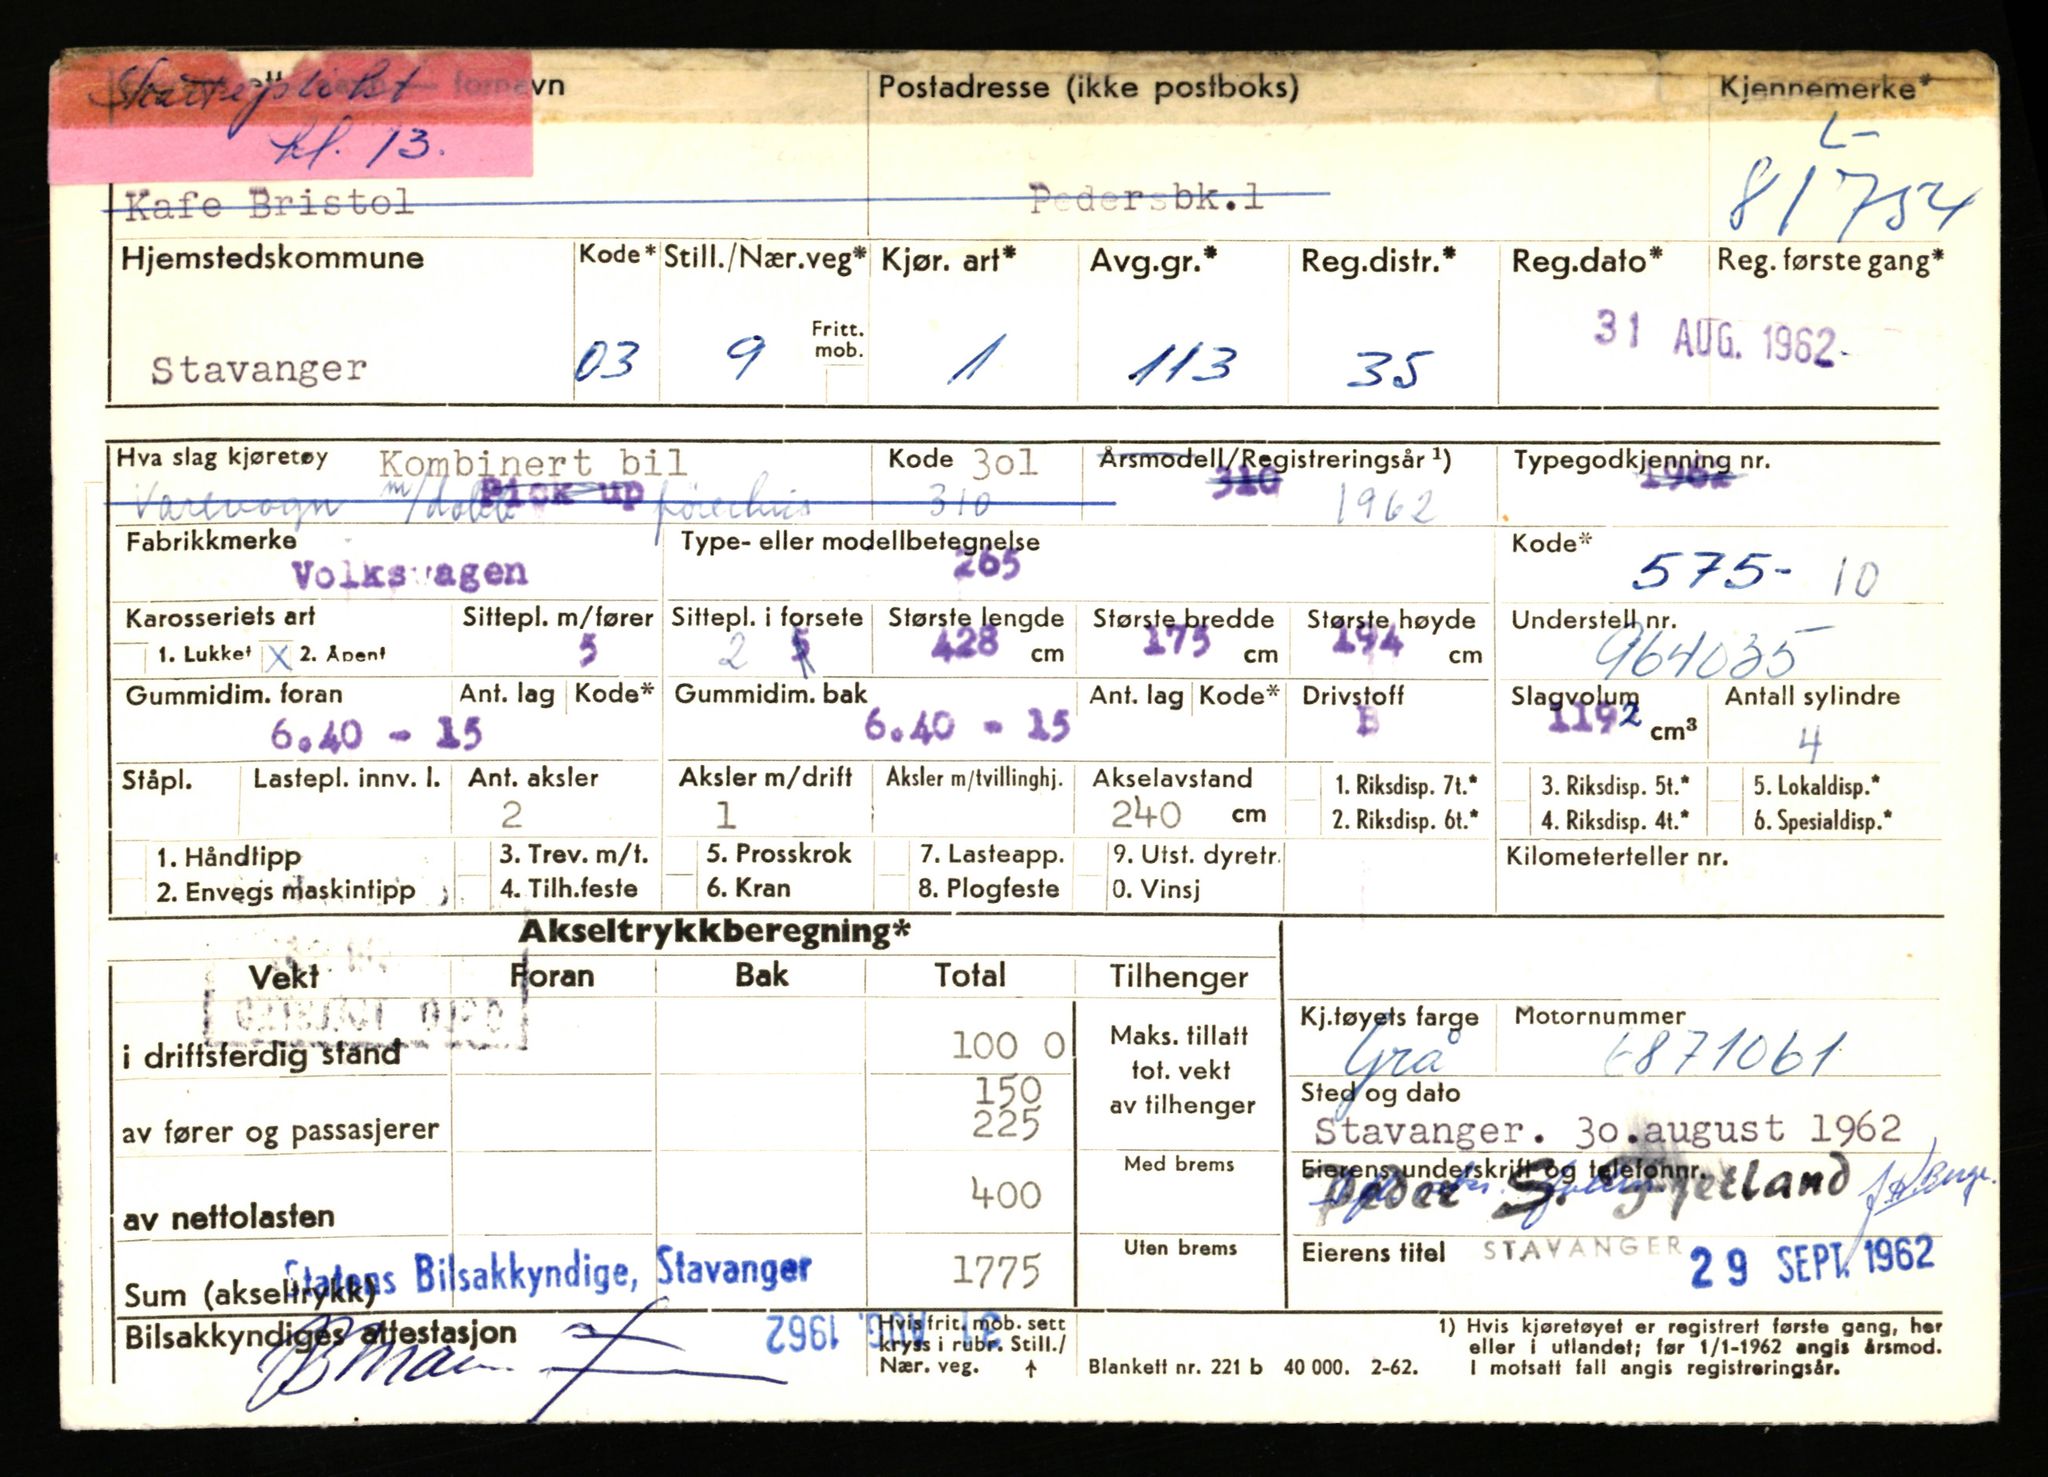 fornavn Postadresse (ikke postboks) Kjennemerke*
kl. 13.
L-
81754
Kafe Bristol Pedersbk.1
Hjemstedskommune Kode* Still./Nær.veg* Kjør. art* Avg.gr.* Reg.distr.* Reg.dato* Reg. første gang*
Fritt. mob.
Stavanger 03 9 1 113 35 31 AUG. 1962
Hva slag kjøretøy Kombinert bil Kode 301 Årsmodell/Registreringsår ¹) Typegodkjenning nr.
Varevogn m/dobb Pick-up førerhus 310 310 1962 1962
Fabrikkmerke Type- eller modellbetegnelse Kode*
Volkswagen 265 575- 10
Karosseriets art Sittepl. m/fører Sittepl. i forsete Største lengde Største bredde Største høyde Understell nr.
1. Lukket X 2. Åpent 5 2 5 428 cm 175 cm 194 cm 964035
Gummidim. foran Ant. lag Kode* Gummidim. bak Ant. lag Kode* Drivstoff Slagvolum Antall sylindre
6.40 - 15 6.40 - 15 B 1192 cm³ 4
Ståpl. Lastepl. innv. l. Ant. aksler Aksler m/drift Aksler m/tvillinghj. Akselavstand 1. Riksdisp. 7t.* 3. Riksdisp. 5t.* 5. Lokaldisp.*
2 1 240 cm 2. Riksdisp. 6t.* 4. Riksdisp. 4t.* 6. Spesialdisp.*
1. Håndtipp 3. Trev. m/t. 5. Prosskrok 7. Lasteapp. 9. Utst. dyretr. Kilometerteller nr.
2. Envegs maskintipp 4. Tilh.feste 6. Kran 8. Plogfeste 0. Vinsj
Akseltrykkberegning*
Vekt Foran Bak Total Tilhenger
Kj.tøyets farge Motornummer
i driftsferdig stand 100 0 Maks. tillatt tot. vekt av tilhenger Grå 6871061
150
av fører og passasjerer 225
Sted og dato
Stavanger. 30.august 1962
Med brems Eierens underskrift og telefonnr.
av nettolasten 400 Peder S.
Uten brems Eierens titel STAVANGER 29 SEPT. 1962
Sum (akseltrykk) Statens Bilsakkyndige, Stavanger 1775
Bilsakkyndiges attestasjon 31 AUG. 1962
Hvis frit. mob. sett
kryss i rubr. Still./
Nær. veg. ↑
Blankett nr. 221 b 40 000. 2-62.
1) Hvis kjøretøyet er registrert første gang, her
eller i utlandet; før 1/1-1962 angis årsmod.
I motsatt fall angis registreringsår.